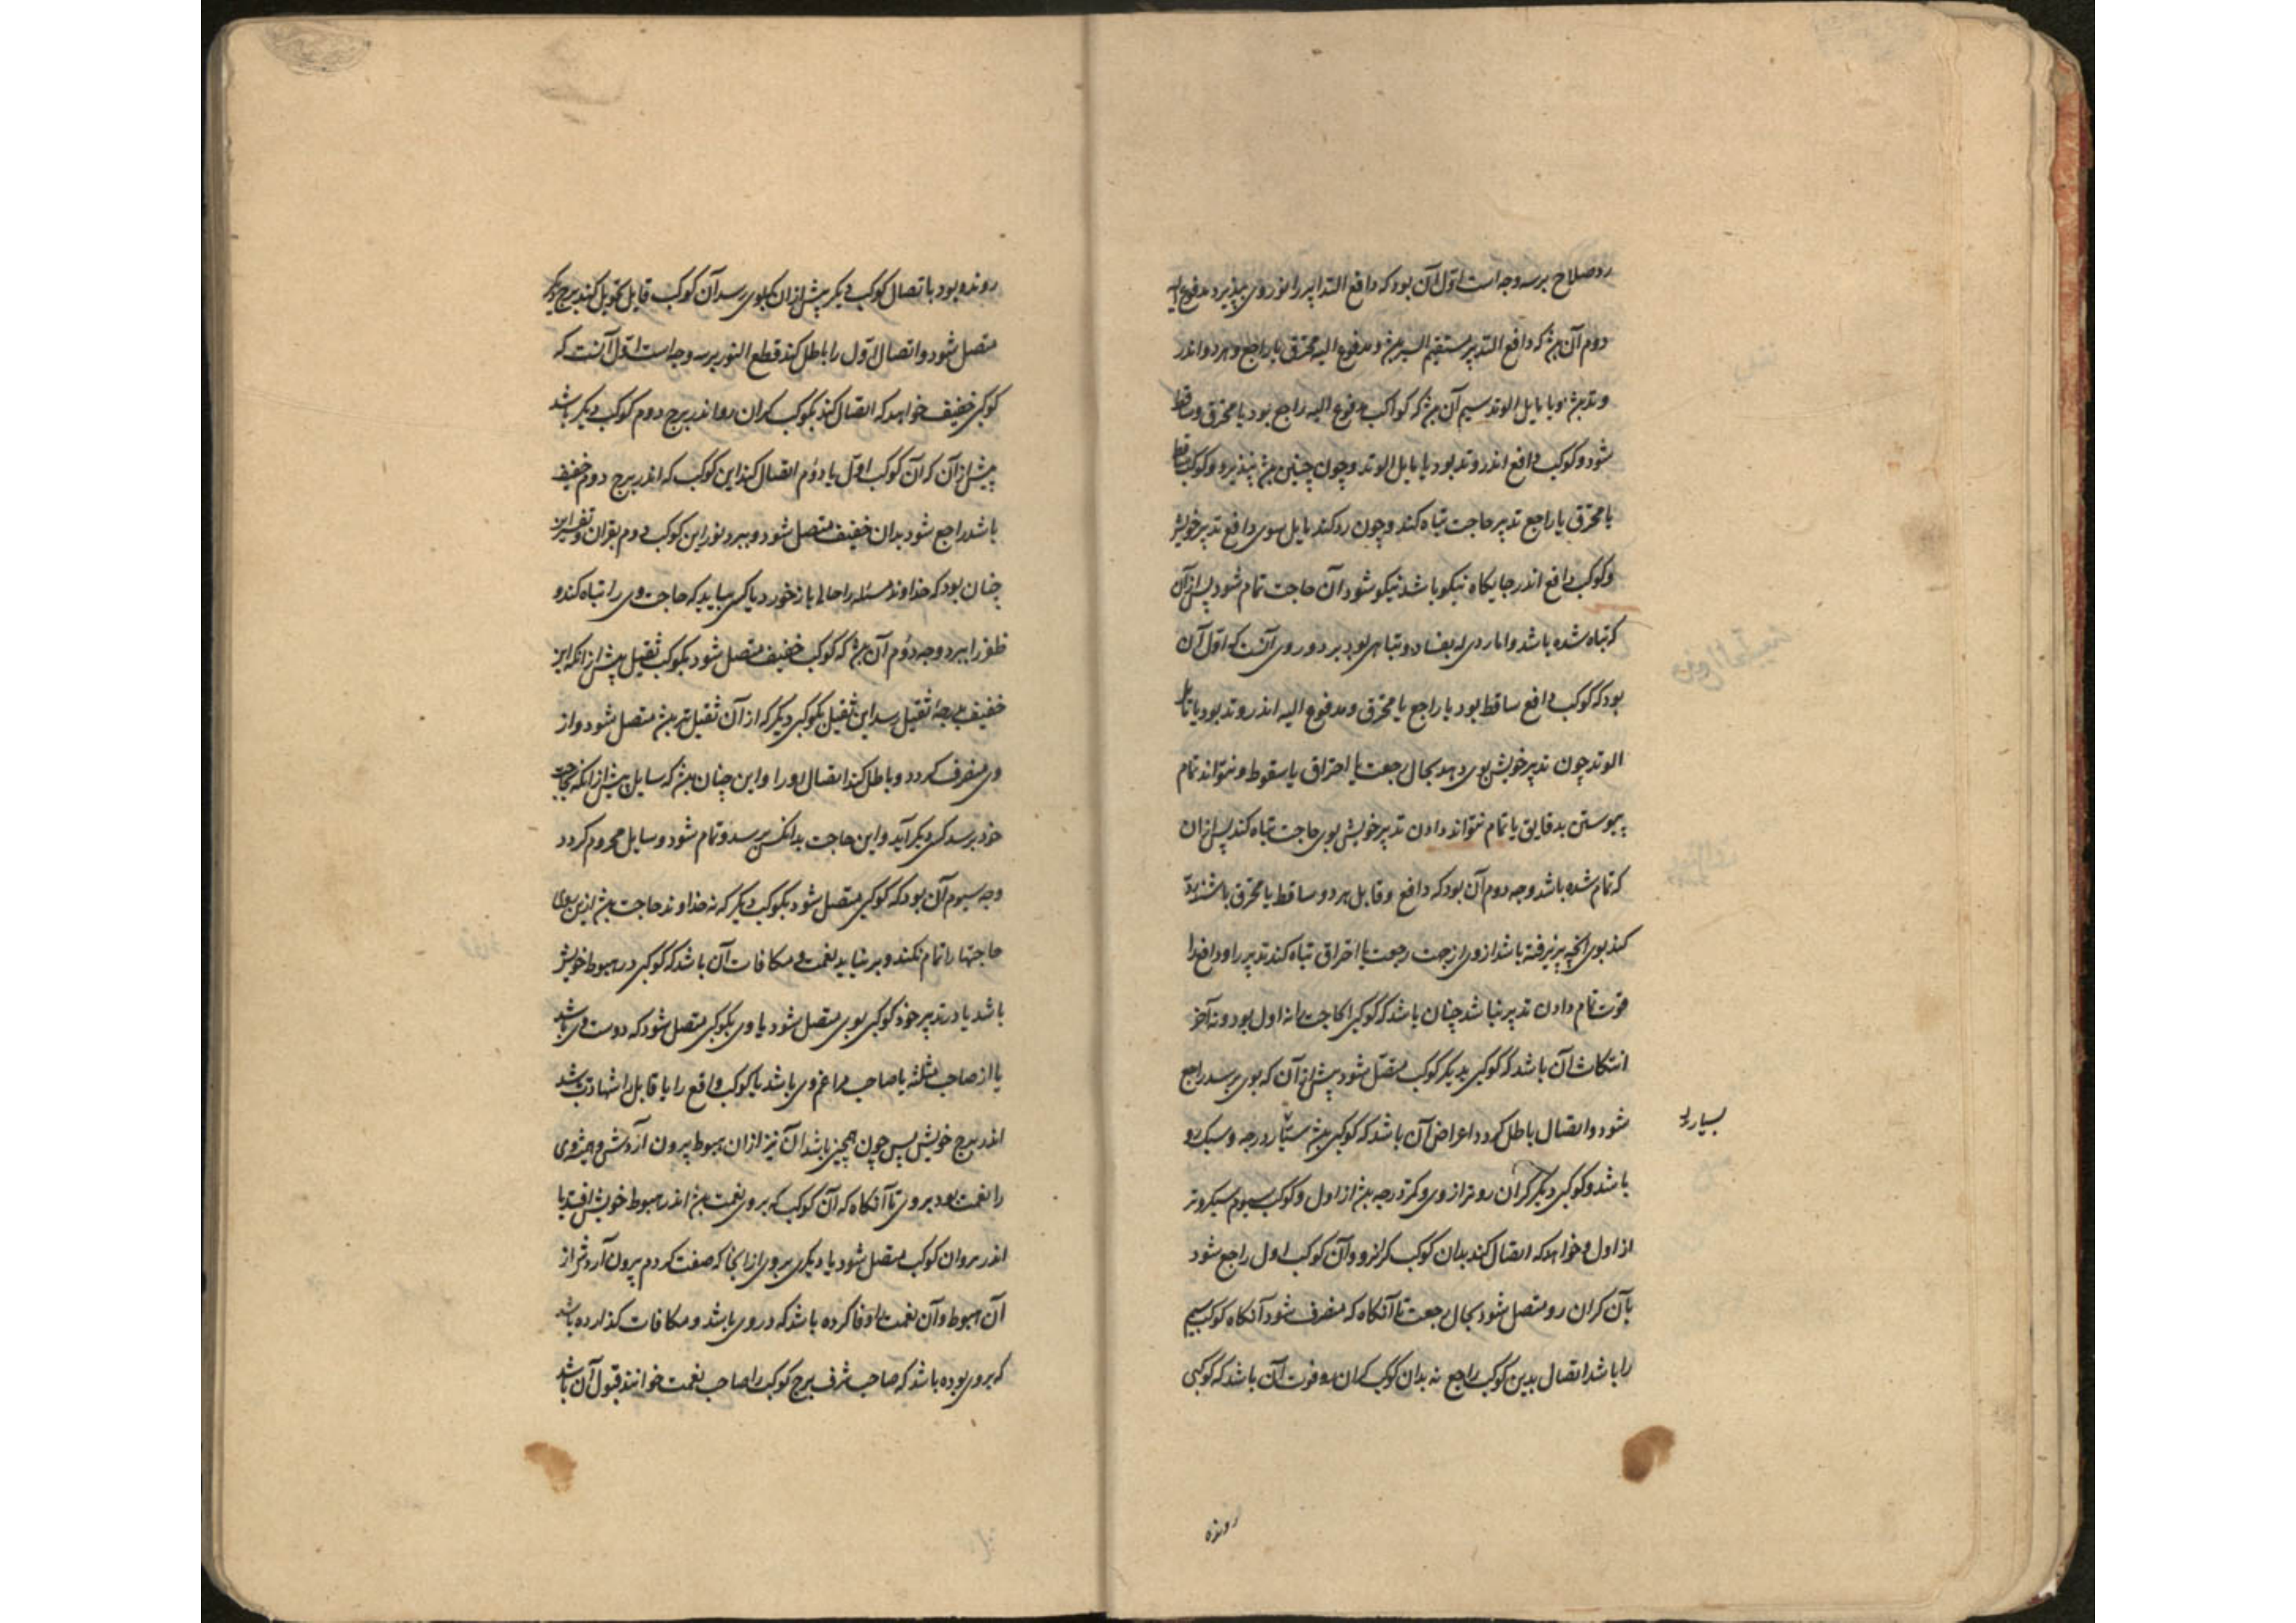 رد صلاح بر سه وجه است اوّل آن بود که دافع التدابیر را نور وی بپذیرد مدفوع الیه
دوم آن بود که دافع التدبیر مستقیم السیر بود و مدفوع الیه محترق یا راجع و هر دو اندر
وتد بود و یا مایل الوتد سیم آن بود که کواکب مدفوع الیه راجع بود یا محترق و ساقط
شود و کوکب دافع اندر وتد بود یا مایل الوتد و چون چنین بود بپذیرد و کوکب ساقط
یا محترق یا راجع تدبیر حاجت تباه کند و چون رد کند مایل سوی دافع تدبیر خویش
و کوکب دافع اندر جایکاه نیکو باشد نیکو شود آن حاجت تمام شود پس از آن
که تباه شده باشد و اما ردی که بفساد و تباهی بود بر دو روی آنست که اوّل آن
بود که کوکب دافع ساقط بود یا راجع یا محترق و مدفوع الیه اندر وتد بود یا مایل
الوتد چون تدبیر خویش بوی دهد بحال رجعت یا احتراق یا سقوط و نتواند تمام
پیوستن بدقایق یا تمام نتواند دادن تدبیر خویش بوی حاجت تباه کند پس از ان
که تمام شده باشد وجه دوم آن بود که دافع و قابل هر دو ساقط یا محترق باشند رد
کند بوی آنچه پذیرفته باشد از وی از جهت رجعت یا احتراق تباه کند تدبیر را و دافع را
قوت تمام دادن تدبیر نباشد چنان باشد که کوکبی را حاجت را نه اول بود و نه آخر
انتکاث آن باشد که کوکبی بدیکر کوکب متصل شود پیش از آن که بوی برسد راجع
شود و اتصال باطل کردد اعراض آن باشد که کوکبی بود بسیار درجه و سبک رو
بسیار
باشد و کوکبی دیکر کران رو تر از وی و کمتر درجه بود از اول و کوکب سیوم سبکروتر
از اول و خواهد که اتصال کند بدان کوکب کرانرو و آن کوکب اول راجع شود
بآن کران رو متصل شود بحال رجعت تا آنکاه که منصرف شود آنکاه کوکب سیم
را باشد اتصال بدین کوکب راجع نه بدان کوکب کران رو فوت آن باشد که کوکبی
رونده
رونده بود باتصال کوکب دیکر پیش از ان که بوی رسد آن کوکب قابل تحویل کند ببرج دیکر
متصل شود و اتصال اوّل را باطل کند قطع النور بر سه وجه است اوّل آنست که
کوکبی خفیف خواهد که اتصال کند بکوکب کران رو اندر برج دوم کوکب دیکر باشد
پیش از آن که آن کوکب اوّل با دوُم اتصال کند این کوکب که اندر برج دوم خفیف
باشد راجع شود بدان خفیف متصل شود و ببرد نور این کوکب دوم بقران و تفسیر این
چنان بود که خداوند مسئله را حالی باز خورد یا کسی بیاید که حاجت وی را تباه کند و
ظفر را ببرد وجه دوُم آن بود که کوکب خفیف متصل شود بکوکب ثقیل پیش از انکه این
خفیف بدرجهٔ ثقیل رسد این ثقیل بکوکبی دیکر که از آن ثقیل تر بود متصل شود و از
وی منصرف کردد و باطل کند اتصال او را و این چنان بود که سایل پیش از انکه بحاجت
خود برسد کسی دیکر آید و این حاجت بدانکس برسد و تمام شود و سایل محروم کردد
وجه سیوم آن بود که کوکبی متصل شود بکوکب دیکر که نه خداوند حاجت بود ازین روی
حاجتها را تمام نکند و بر نیاید نعمت و مکافات آن باشد که کوکبی در هبوط خویش
باشد یا در تدبیر خود کوکبی بوی متصل شود یا وی بکوکبی متصل شود که دوست وی باشد
یا از صاحب مثلثه یا صاحب مزاعم وی باشد یا کوکب دافع را یا قابل را شهادت باشد
اندر برج خویش پس چون همچنین باشد آن نیز از ان هبوط بیرون آردش و همیشه وی
را نعمت بود بر وی تا آنکاه که آن کوکب که بر وی نعمت بود اندر هبوط خویش افتد یا
اندر بروان کوکب متصل شود یا دیکری بر وی از اینجا که صفت کردم بیرون آردش از
آن هبوط و آن نعمت را وفا کرده باشد که در وی باشد و مکافات کذارده باشد
که بر وی بوده باشد که صاحب شرف برج کوکب را صاحب نعمت خوانند قبول آن باشد